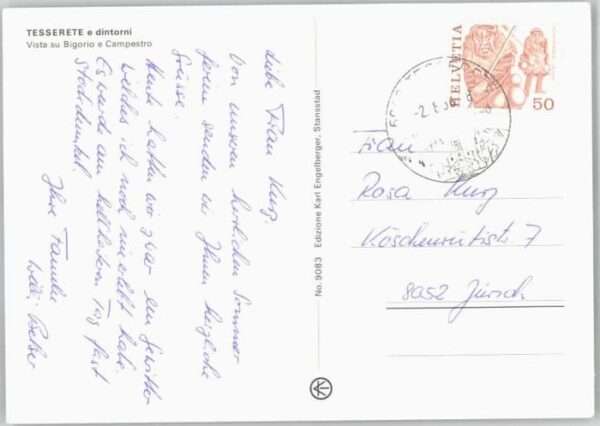 TESSERETE e dintorni
Vista su Bigorio e Campestro
Liebe Frau Kurz.
Von unseren herrlichen Sommer
ferien senden wir Ihnen herzliche
Grüsse.
Heute hatten wir zwar ein Gewitter
welches ich noch nie erlebt habe.
Es wurde am hellichten Tag fast
Stockdunkel.
Ihre Familie
No. 9083 Edizione Karl Engelberger, Stansstad
HELVETIA
50
Frau
Rosa Kurz
Köschenrütistr. 7
8052 Zürich